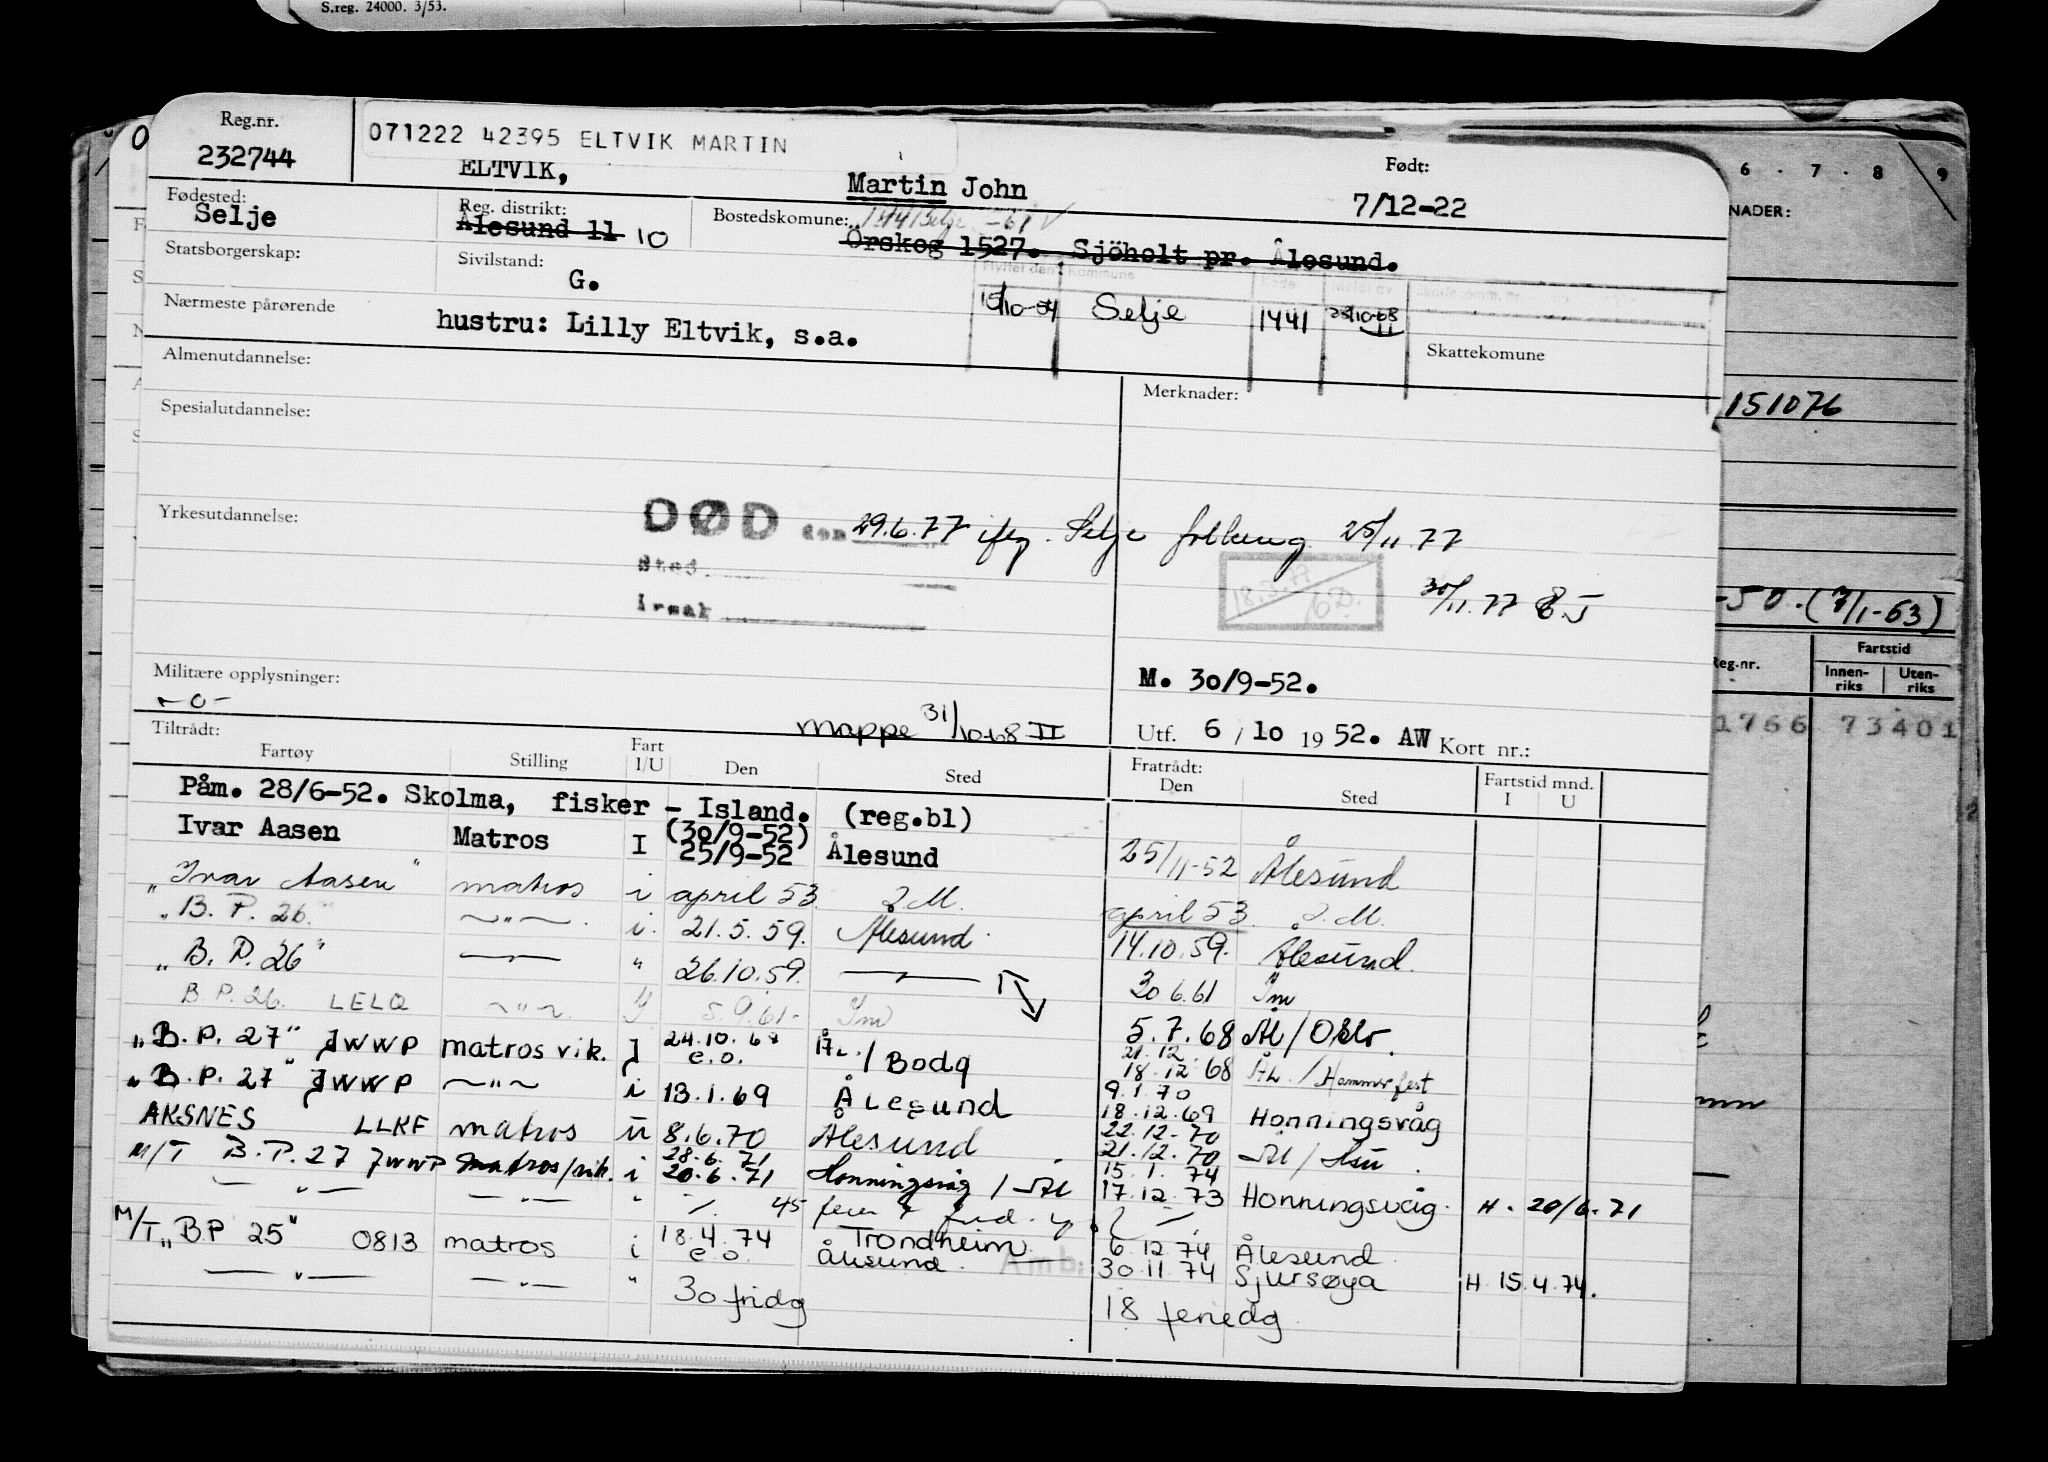 S.reg. 24000. 3/53.
Reg.nr.
232744
071222 42395 ELTVIK MARTIN
ELTVIK, Martin John
Født:
7/12-22
Fødested:
Selje
Reg. distrikt:
Ålesund 11 10
Bostedskomune: 1441 Selje -61 ✓
Örskog 1527. Sjöholt pr. Ålesund.
Statsborgerskap:
Sivilstand:
G.
Flyttet den Kommune Kode
15/10-54 Selje 1441 28/10-68 II
Nærmeste pårørende
hustru: Lilly Eltvik, s.a.
Skattekomune
Almenutdannelse:
Merknader:
Spesialutdannelse:
Yrkesutdannelse:
DØD den 29.6.77 iflg. Selje folkereg. 25/11.77
Sted
Årsak
30/11.77
Militære opplysninger:
-0-
M. 30/9-52.
mappe 31/10-68 II
Utf. 6 / 10 1952. AW Kort nr.:
Tiltrådt:
Fartøy Stilling Fart I/U Den Sted
Fratrådt:
Den Sted
Fartstid mnd.
I U
Påm. 28/6-52. Skolma, fisker - Island. (reg.bl)
Ivar Aasen Matros I (30/9-52) 25/9-52 Ålesund 25/11-52 Ålesund
"Ivar Aasen" matros i april 53 2 M. april 53 2. M.
"B. P. 26." ~"~ i. 21.5.59. Ålesund 14.10.59. Ålesund.
"B. P. 26" " 26.10.59. 30.6.61 Im
B.P. 26. LELQ ~"~ 5.9.61- Im 5.7.68 Ål/Oslo.
"B.P. 27" JWWP matros vik. I 24.10.67 e.o. Ål./Bodø 21.12 18.12 68 Ål./Hammerfest
"B.P. 27" JWWP ~"~ i 13.1.69 Ålesund 9.1.70 18.12.69 Honningsvåg
AKSNES LLKF matros u 8.6.70 Ålesund 22.12.70 21.12.70
M/T B.P. 27 JWWP matros/vik. i 28.6.71 20.6.71 Honningsvåg / Ål 15.1.74 17.12.73 Honningsvåg. H. 20/6.71
— " — — " — " 45
M/T "BP 25" 0813 matros i 18.4.74 e.o. Trondheim Ålesund 6.12.74 30.11.74 Ålesund Sjursøya H 15.4.74.
Amb.
— " — — " — " 30 fridg 18 feriedg
6 . 7 . 8 9
NADER:
151076
-50.(7/1-63)
Reg.nr.
Fartstid
Innen-riks Uten-riks
1766 73401